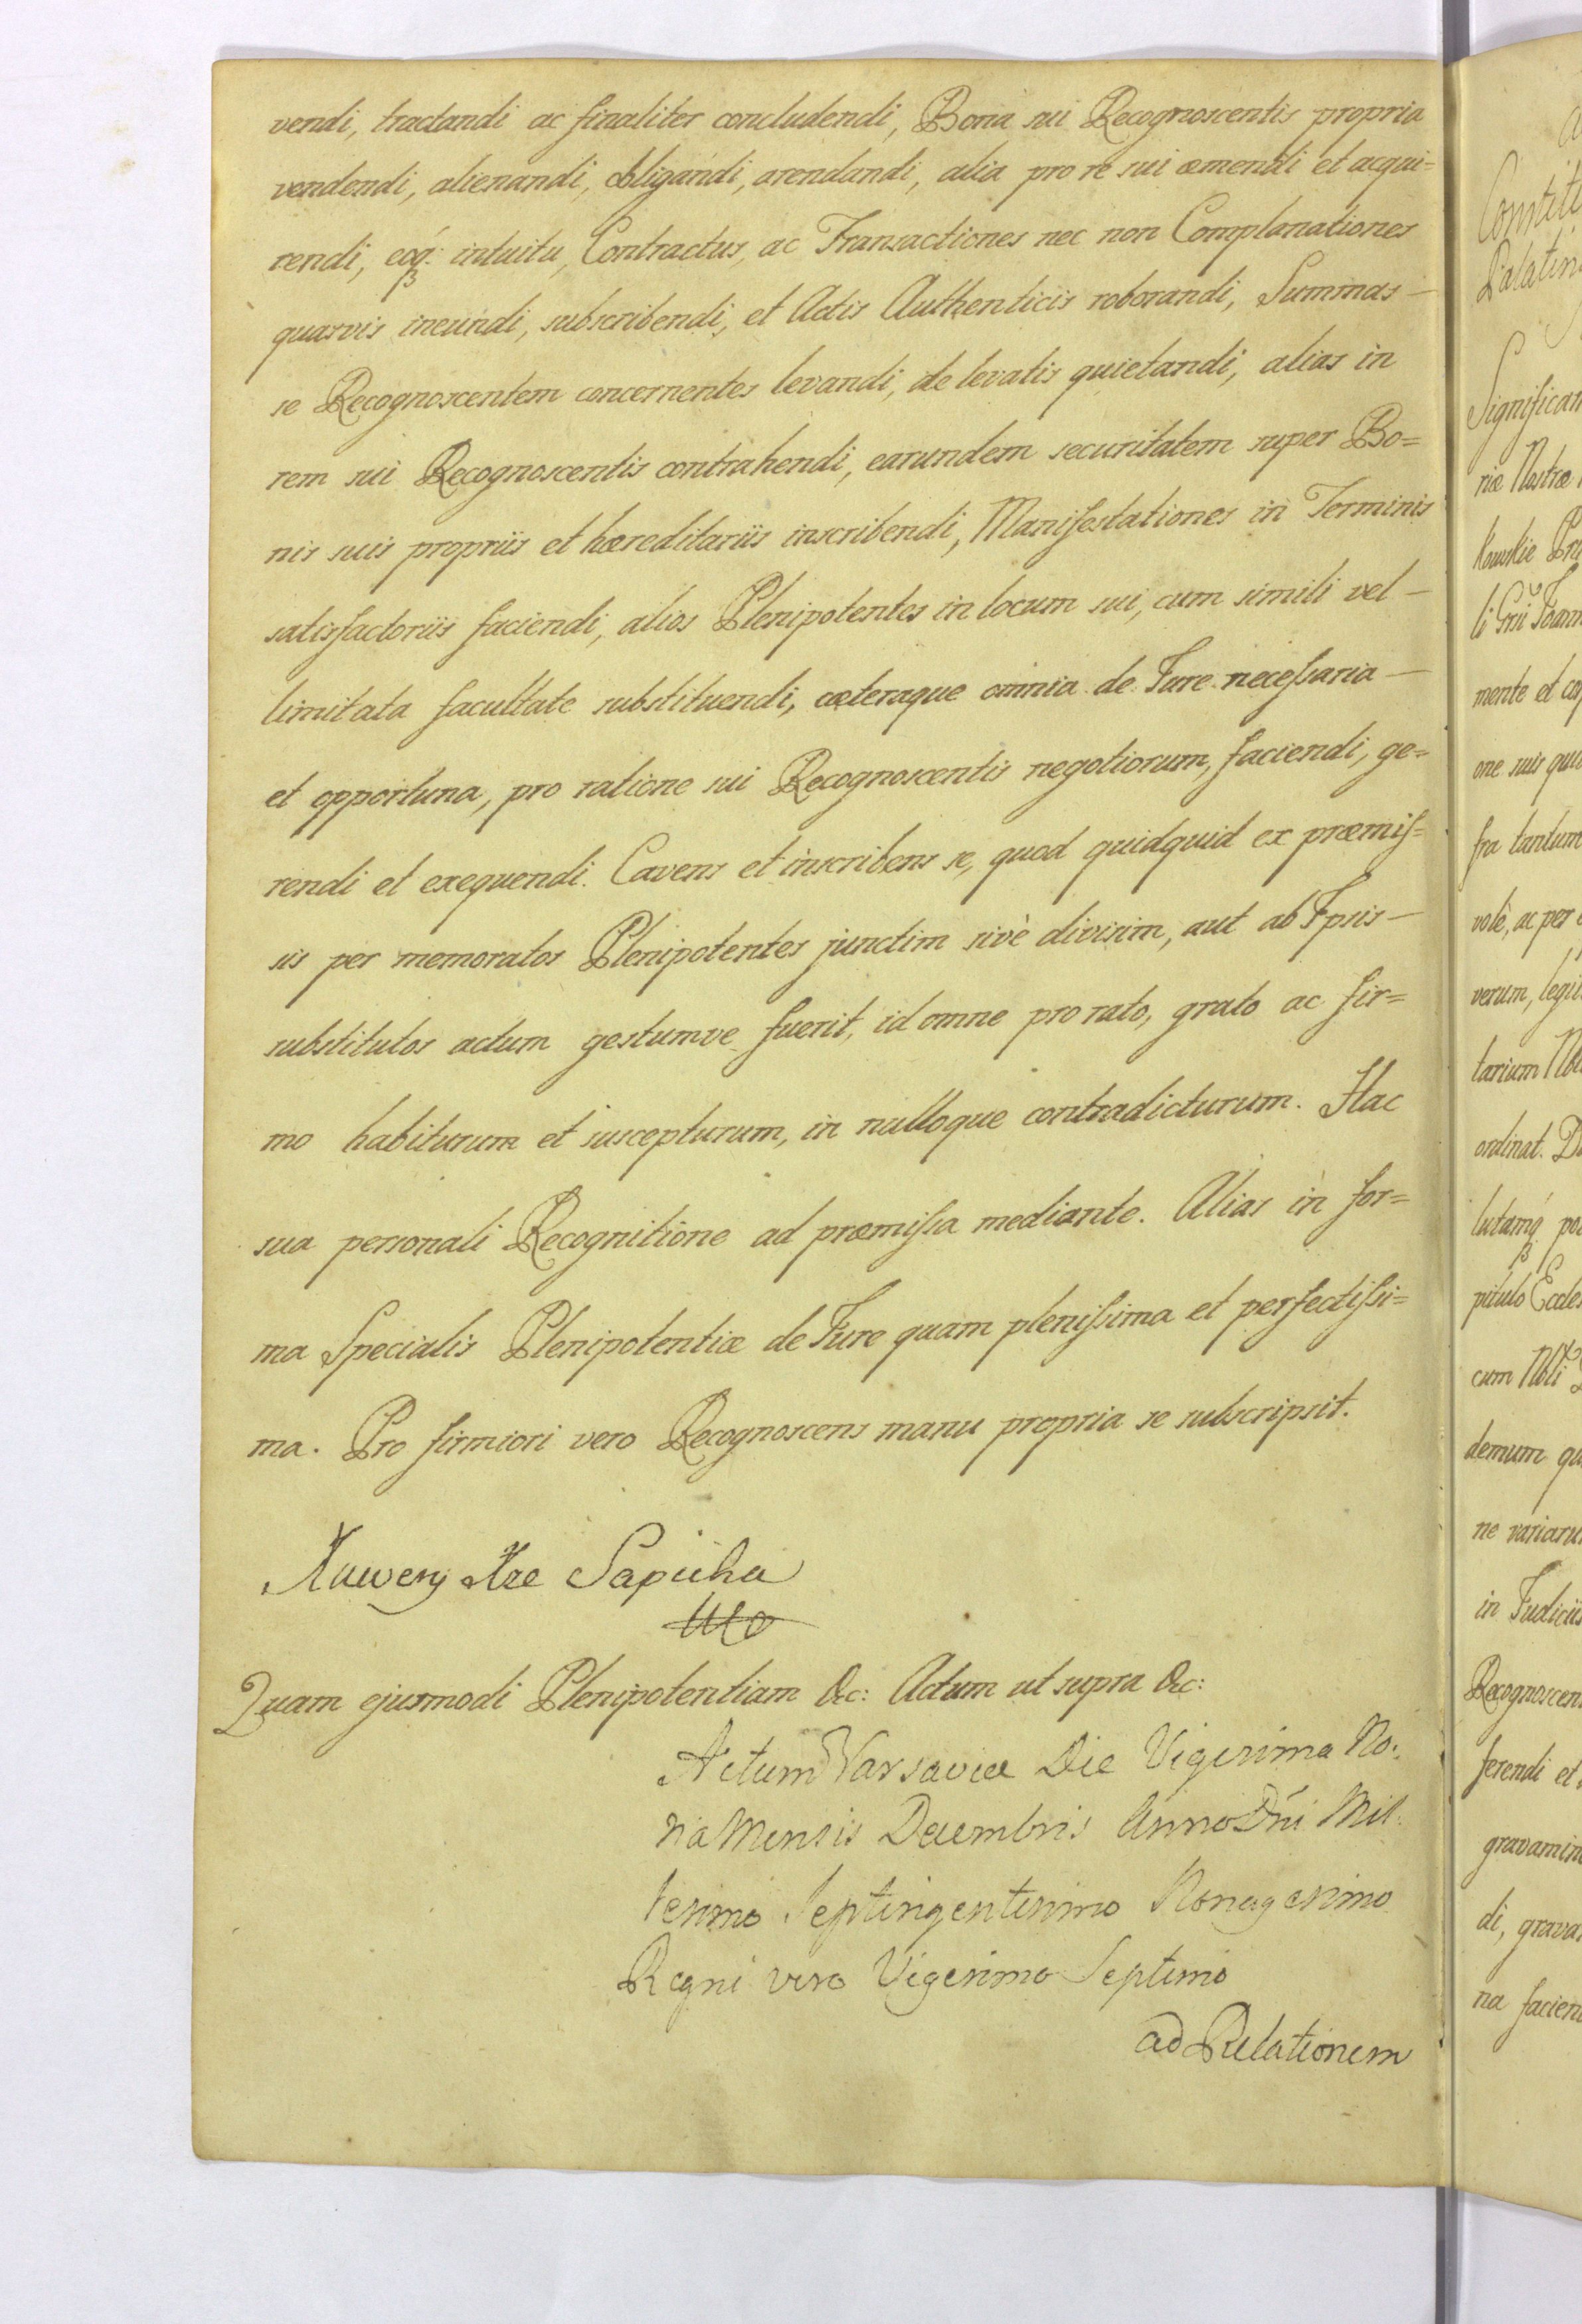 vendi, tractandi ac finaliter concludendi, Bona sui Recognoscentis propria
vendendi, alienandi, obligandi, arendandi, alia pro re sui æmendi et acqui=
rendi, eoq: intuitu, Contractus, ac Transactiones nec non Complanationes
quasvis ineundi, subscribendi, et Actis Authenticis roborandi, Summas —
se Recognoscentem concernentes levandi, de levatis quietandi, alias in
rem sui Recognoscentis contrahendi, earundem securitatem super Bo=
nis suis propriis et hæreditariis inscribendi, Manifestationes in Terminis
satisfactoriis faciendi, alios Plenipotentes in locum sui, cum simili vel —
limitata facultate substituendi, cæteraque omnia de Jure necessaria —
et opportuna, pro ratione sui Recognoscentis negotiorum, faciendi, ge=
rendi et exequendi. Cavens et inscribens se, quod quidquid ex præmis=
sis per memoratos Plenipotentes junctim sivè divisim, aut ab Ipsis —
substitutos actum gestumve fuerit, id omne pro rato, grato ac fir=
mo habiturum et suscepturum, in nulloque contradicturum. Hac
sua personali Recognitione ad præmissa mediante. Alias in for=
ma Specialis Plenipotentiæ de Jure quam plenissima et perfectissi=
ma. Pro firmiori vero Recognoscens manu propria se subscripsit.
Xawery Xże Sapieha
Quam ejusmodi Plenipotentiam &c: Actum ut supra &c:
Actum Varsaviæ Die Vigesima No:
na Mensis Decembris Anno Dñi Mil
lesimo Septingentesimo Nonagesimo
Regni vero Vigesimo Septimo
ad Relationem
Palatin
Significam
riæ Nostræ
mente et
one suis
fra tantum
volè, ac per
verum,
tarium
ordinat.
cum
demum
ne
in Judiciis
Recognoscen
ferendi et
gravamin
di, grava
na facien